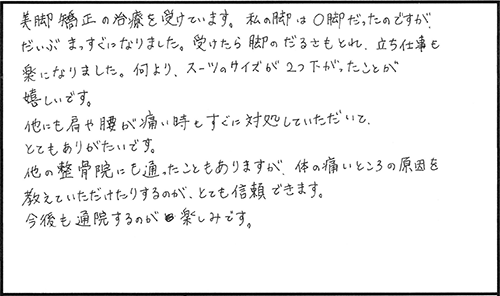 美脚矯正の治療を受けています。私の脚は〇脚だったのですが、
だいぶまっすぐになりました。受けたら脚のだるさもとれ、立ち仕事も
楽になりました。何より、スーツのサイズが2つ下がったことが
嬉しいです。
他にも肩や腰が痛い時もすぐに対処していただいて、
とてもありがたいです。
他の整骨院にも通ったこともありますが、体の痛いところの原因を
教えていただけたりするのが、とても信頼できます。
今後も通院するのが楽しみです。